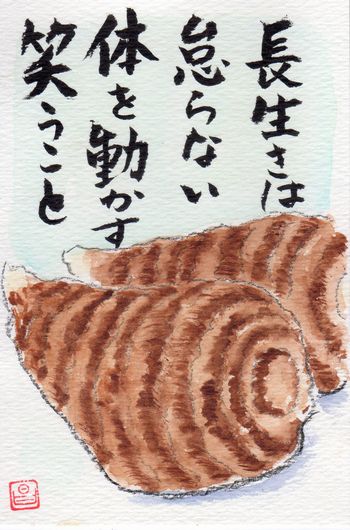 長生きは
怠らない
体を動かす
笑うこと